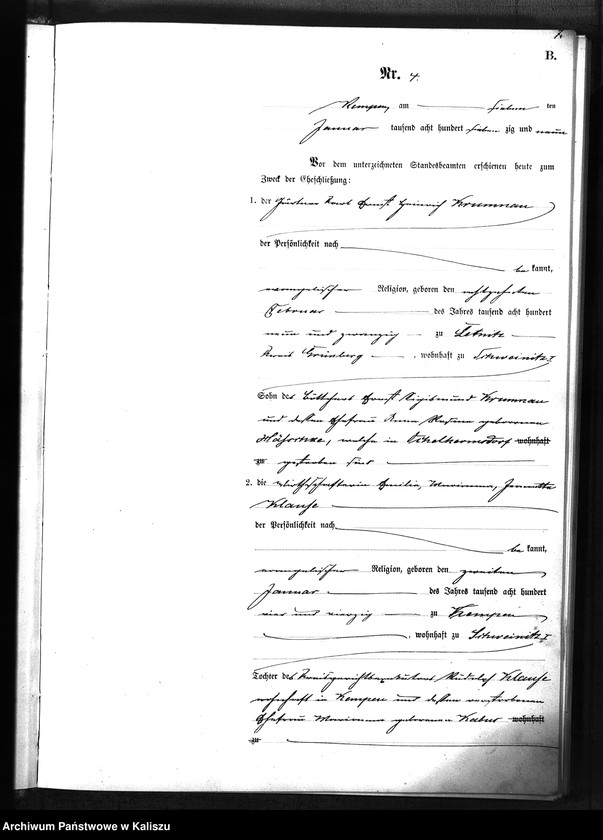 B.
Nr. 4.
Kempen, am sieben ten
Januar tausend acht hundert sieben zig und neun
Vor dem unterzeichneten Standesbeamten erschienen heute zum
Zweck der Eheschließung:
1. der Gärtner Karl Ernst Heinrich Krumnau
der Persönlichkeit nach
be kannt,
evangelischer Religion, geboren den
Februar des Jahres tausend acht hundert
neun und zwanzig zu
Kreis Grünberg, wohnhaft zu Schweinitz I
Sohn des Ernst Sigismund Krumnau
und dessen Ehefrau Anna geborenen
welche in wohnhaft
zu gestorben sind
2. die Wirthschafterin Emilie, Marianna,
Klause
der Persönlichkeit nach
be kannt,
evangelischer Religion, geboren den zweiten
Januar des Jahres tausend acht hundert
vier und vierzig zu Kempen
, wohnhaft zu Schweinitz I
Tochter des Rudolf Klause
wohnhaft in Kempen und dessen verstorbenen
Ehefrau Marianna geborenen wohnhaft
zu
Archiwum Państwowe w Kaliszu